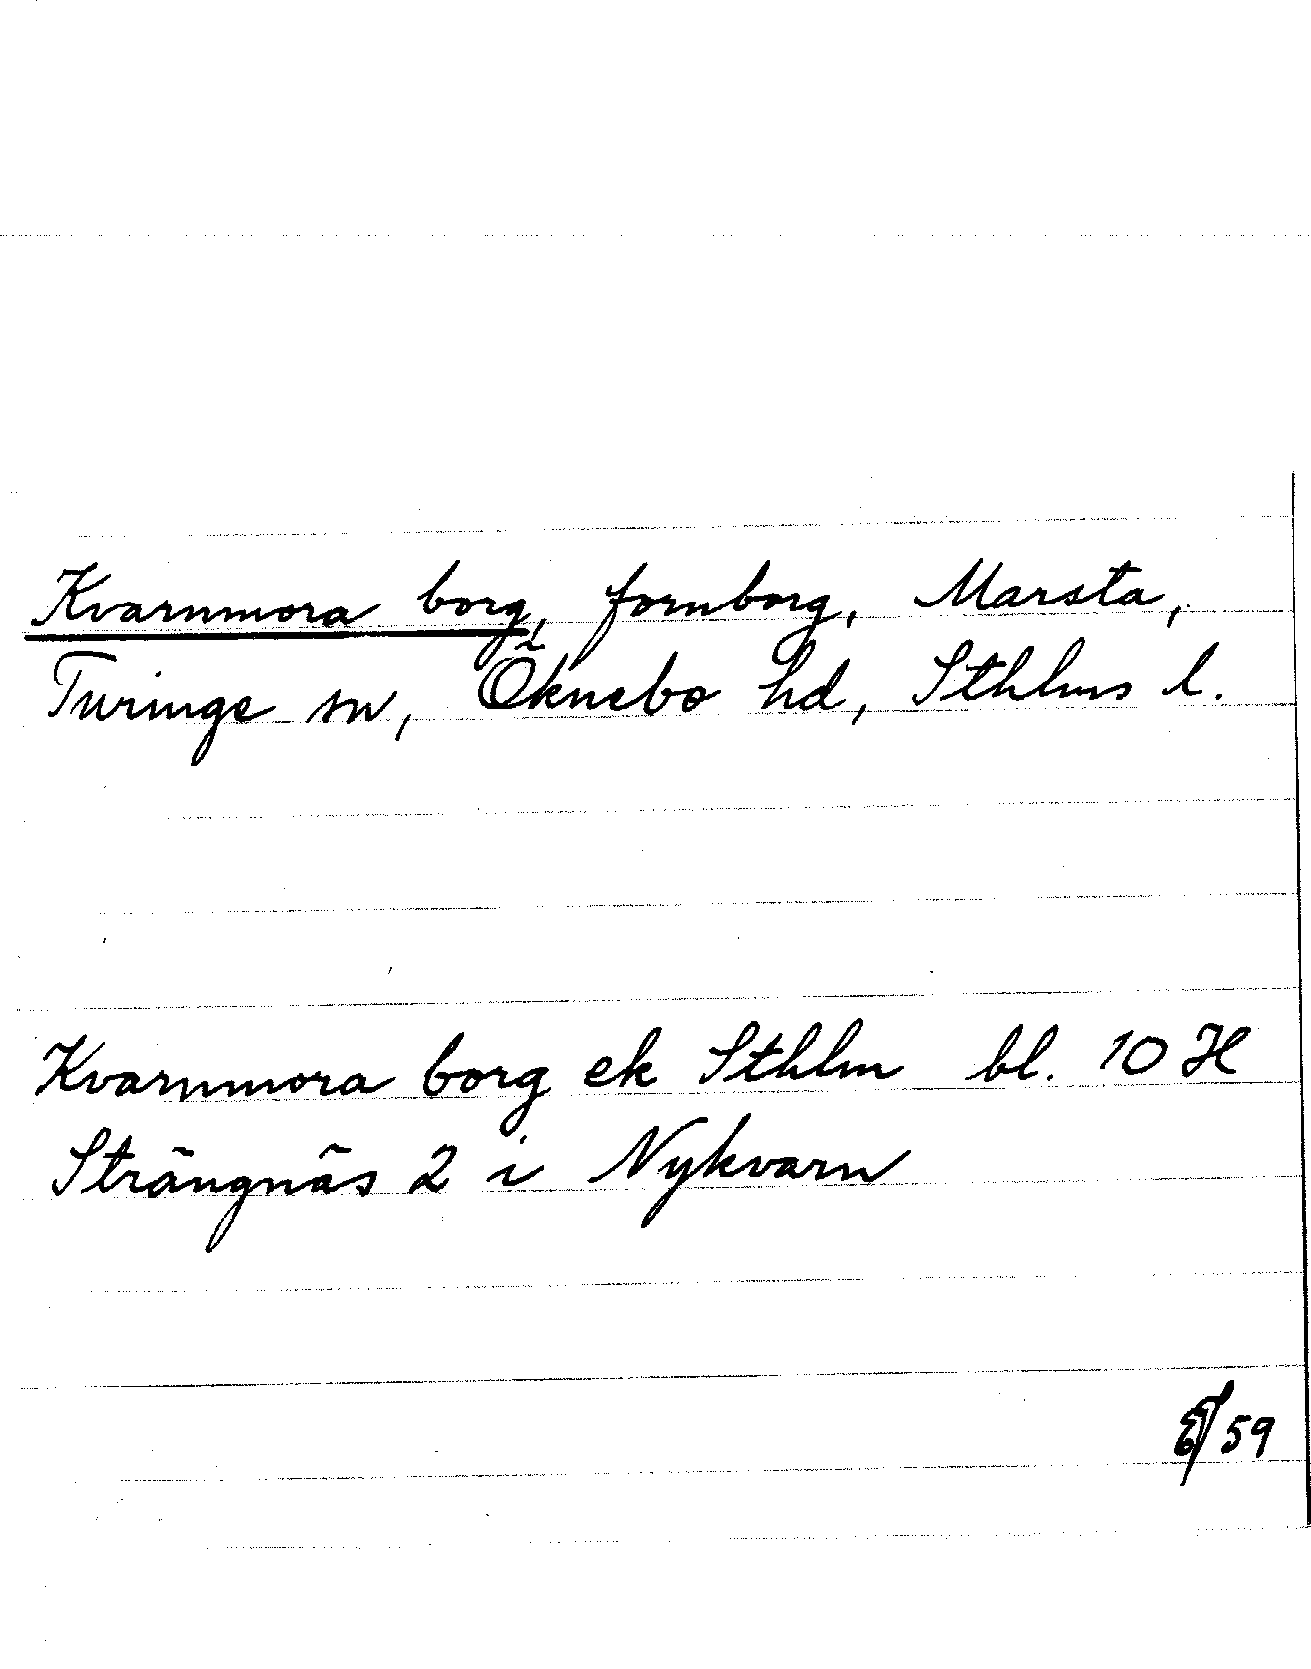 Kvarnmora borg, fornborg, Marsta,
Turinge sn, Öknebo hd, Sthlms l.
Kvarnmora borg ek Sthlm bl. 10 H
Strängnäs 2 i Nykvarn
59